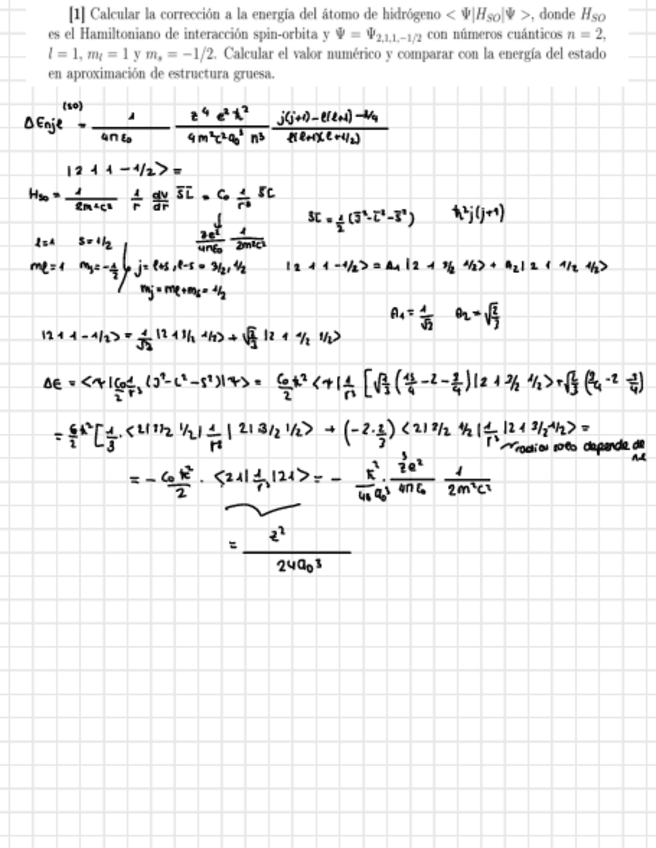 [1] Calcular la corrección a la energía del átomo de hidrógeno < Ψ|H_SO|Ψ >, donde H_SO
es el Hamiltoniano de interacción spin-orbita y Ψ = Ψ_{2,1,1,-1/2} con números cuánticos n = 2,
l = 1, m_l = 1 y m_s = −1/2. Calcular el valor numérico y comparar con la energía del estado
en aproximación de estructura gruesa.
ΔE_{nje}^{(so)} = 1/(4πε₀) z⁴e²ħ²/(4m²c²a₀³n³) (j(j+1)−ℓ(ℓ+1)−3/4)/(ℓ(ℓ+1)(ℓ+1/2))
|2 1 1 −1/2> =
H_so = 1/(2m²c²) 1/r dv/dr S̄L̄ = C₀ 1/r³ S̄L̄
ze²/(4πε₀) 1/(2m²c²)
S̄L̄ = 1/2 (J̄²−L̄²−S̄²) ħ²j(j+1)
l=1 s=1/2
mℓ=1 m_s=−1/2 j=ℓ+s, ℓ−s = 3/2, 1/2
m_j=mℓ+m_s=1/2
|2 1 1 −1/2> = A₁ |2 1 3/2 1/2> + A₂ |2 1 1/2 1/2>
A₁=1/√3 A₂=√(2/3)
|2 1 1 −1/2> = 1/√3 |2 1 3/2 1/2> + √(2/3) |2 1 1/2 1/2>
ΔE = <Ψ|C₀/2 1/r³ (J²−L²−S²)|Ψ> = C₀ħ²/2 <Ψ|1/r³ [√(1/3) (15/4 −2−3/4)|2 1 3/2 1/2> + √(2/3) (3/4 −2 −3/4)
= C₀/2 ħ² [1/3 · <2 1 3/2 1/2| 1/r³ |2 1 3/2 1/2> + (−2·2/3) <2 1 1/2 1/2 |1/r³ |2 1 1/2 1/2> =
radial solo depende de
nℓ
= − C₀ħ²/2 · <21|1/r³|21> = − ħ²/(48 a₀³) · z³ze²/(4πε₀) 1/(2m²c²)
= z³/(24a₀³)